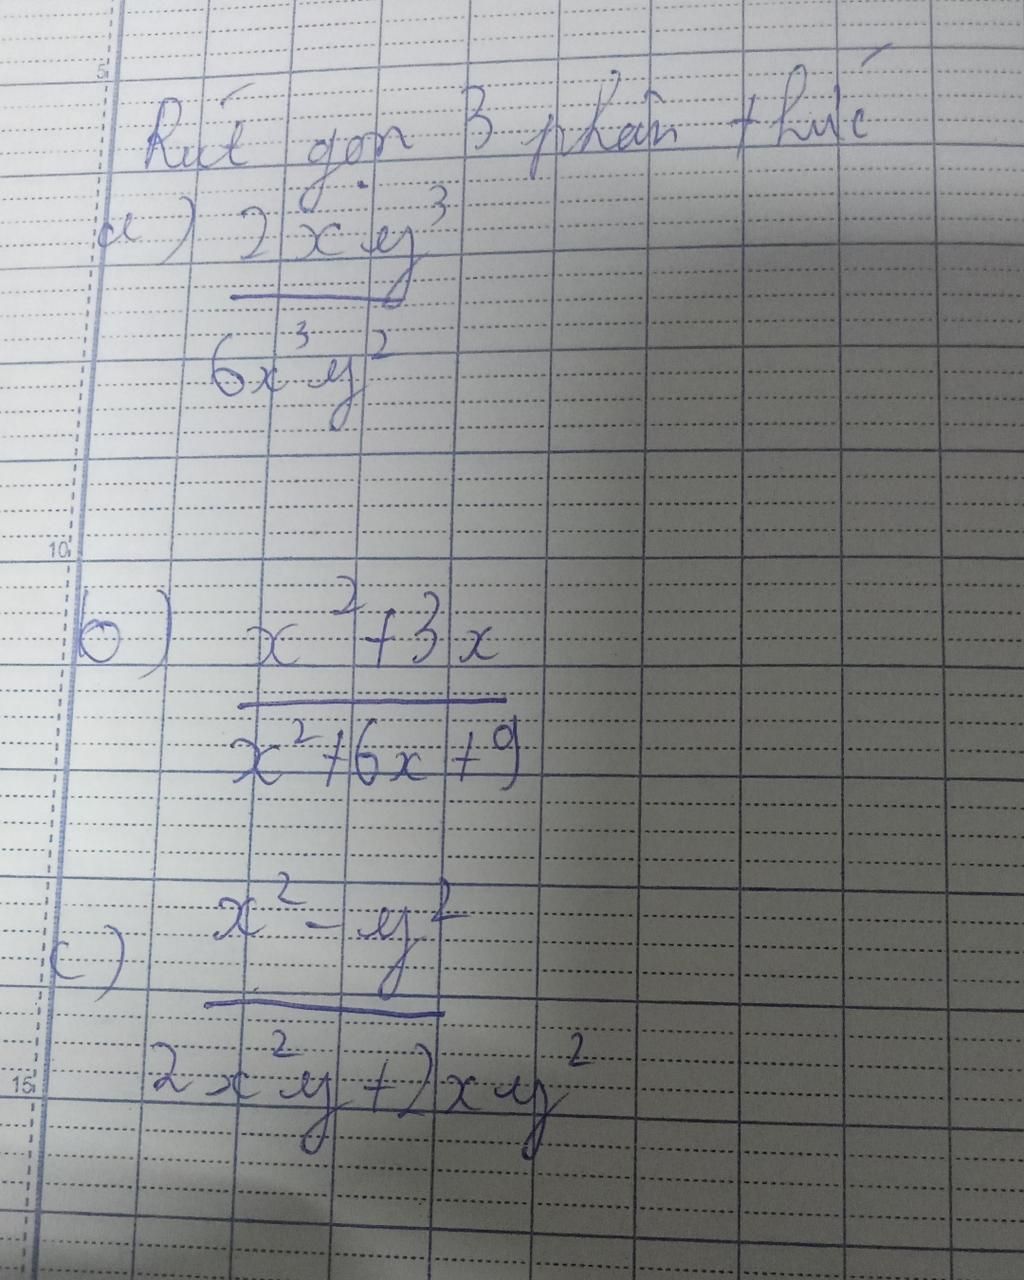 5
Rút gọn 3 phân thức
a) 2xy³
6x³y²
10
b) x² + 3x
x² + 6x + 9
x² - y²
c)
15
2x²y + 2xy²